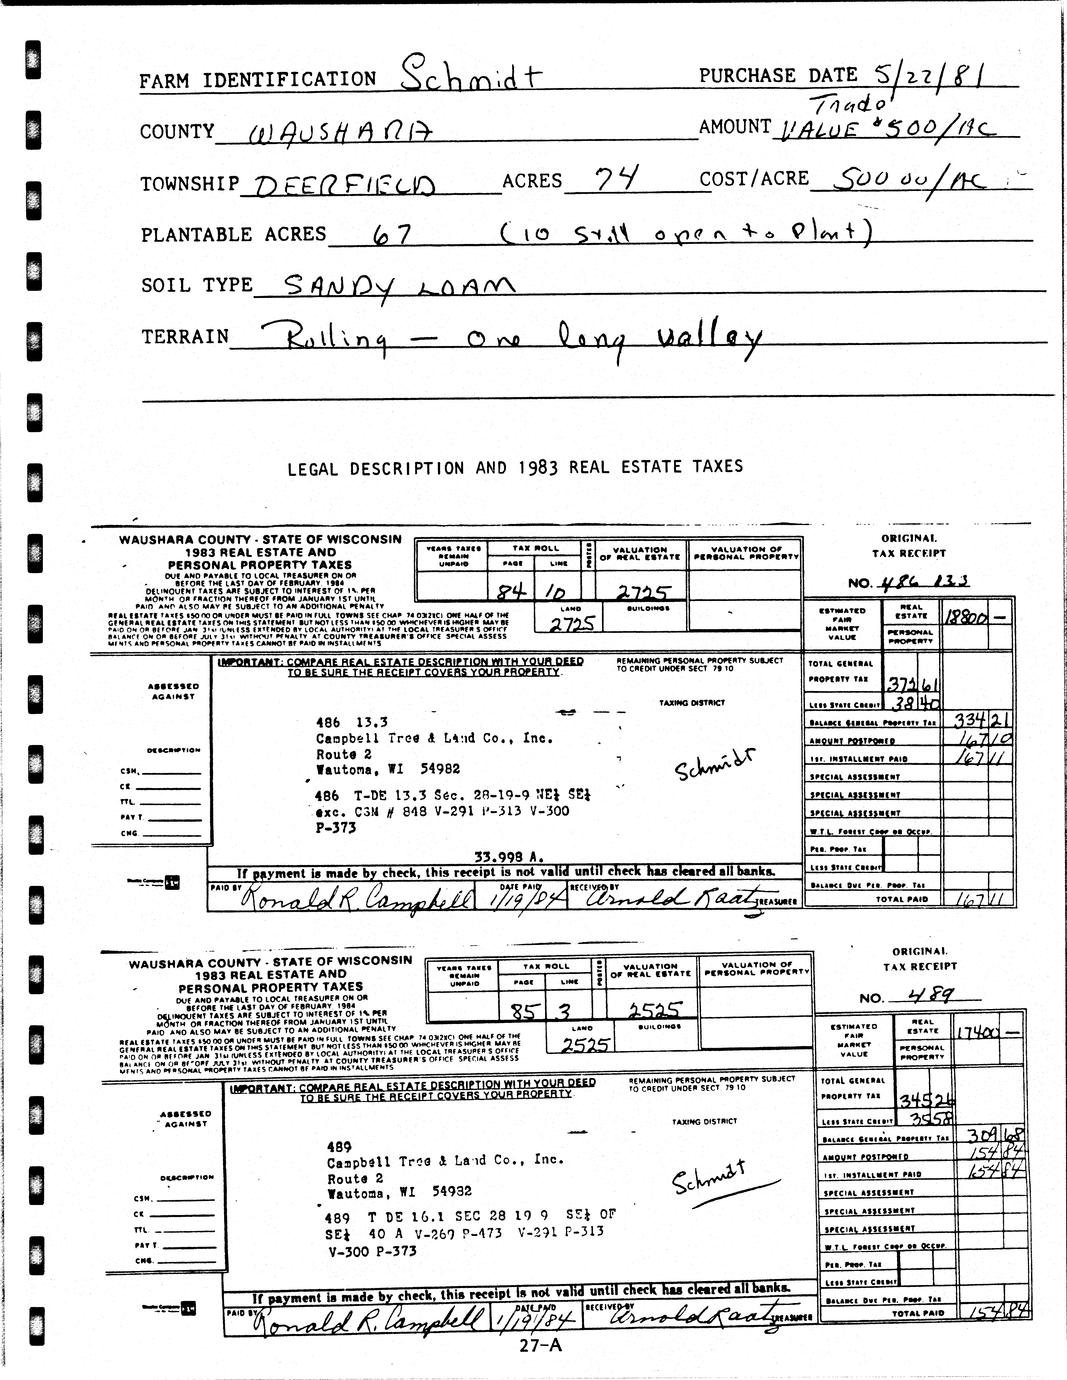 FARM IDENTIFICATION Schmidt PURCHASE DATE 5/22/81
COUNTY WAUSHARA AMOUNT Trade VALUE $500/AC
TOWNSHIP DEERFIELD ACRES 74 COST/ACRE 500 00/AC
PLANTABLE ACRES 67 (10 still open to plant)
SOIL TYPE SANDY LOAM
TERRAIN Rolling — one long valley
LEGAL DESCRIPTION AND 1983 REAL ESTATE TAXES
WAUSHARA COUNTY - STATE OF WISCONSIN
1983 REAL ESTATE AND
PERSONAL PROPERTY TAXES
DUE AND PAYABLE TO LOCAL TREASURER ON OR
BEFORE THE LAST DAY OF FEBRUARY 1984
DELINQUENT TAXES ARE SUBJECT TO INTEREST OF 1% PER
MONTH OR FRACTION THEREOF FROM JANUARY 1ST UNTIL
PAID AND ALSO MAY BE SUBJECT TO AN ADDITIONAL PENALTY
REAL ESTATE TAXES $50.00 OR UNDER MUST BE PAID IN FULL TOWNS SEE CHAP 74 03(2)(C) ONE HALF OF THE
GENERAL REAL ESTATE TAXES ON THIS STATEMENT BUT NOT LESS THAN $50 00 WHICHEVER IS HIGHER MAY BE
PAID ON OR BEFORE JAN 31st (UNLESS EXTENDED BY LOCAL AUTHORITY) AT THE LOCAL TREASURER'S OFFICE
BALANCE ON OR BEFORE JULY 31st WITHOUT PENALTY AT COUNTY TREASURER'S OFFICE SPECIAL ASSESS
MENTS AND PERSONAL PROPERTY TAXES CANNOT BE PAID IN INSTALLMENTS
YEARS TAXES REMAIN UNPAID
TAX ROLL
PAGE LINE
84 10
POSTED
VALUATION OF REAL ESTATE
2725
LAND BUILDINGS
2725
VALUATION OF PERSONAL PROPERTY
ORIGINAL
TAX RECEIPT
NO. 486 133
ESTIMATED FAIR MARKET VALUE
REAL ESTATE 18800 —
PERSONAL PROPERTY
IMPORTANT: COMPARE REAL ESTATE DESCRIPTION WITH YOUR DEED
TO BE SURE THE RECEIPT COVERS YOUR PROPERTY.
REMAINING PERSONAL PROPERTY SUBJECT
TO CREDIT UNDER SECT 79 10
TAXING DISTRICT
ASSESSED
AGAINST
DESCRIPTION
CSM.
CK
TTL.
PAY T.
CHG
486 13.3
Campbell Tree & Land Co., Inc.
Route 2
Wautoma, WI 54982
Schmidt
486 T-DE 13.3 Sec. 28-19-9 NE¼ SE¼
exc. CSM # 848 V-291 P-313 V-300
P-373
33.998 A.
TOTAL GENERAL PROPERTY TAX 372 61
LESS STATE CREDIT 38 40
BALANCE GENERAL PROPERTY TAX 334 21
AMOUNT POSTPONED 167 10
1ST. INSTALLMENT PAID 167 11
SPECIAL ASSESSMENT
SPECIAL ASSESSMENT
SPECIAL ASSESSMENT
W.T.L. FOREST CROP OR OCCUP.
PER. PROP. TAX
LESS STATE CREDIT
BALANCE DUE PER. PROP. TAX
TOTAL PAID 167 11
If payment is made by check, this receipt is not valid until check has cleared all banks.
PAID BY Ronald R. Campbell DATE PAID 1/19/84 RECEIVED BY Arnold Raatz TREASURER
WAUSHARA COUNTY - STATE OF WISCONSIN
1983 REAL ESTATE AND
PERSONAL PROPERTY TAXES
DUE AND PAYABLE TO LOCAL TREASURER ON OR
BEFORE THE LAST DAY OF FEBRUARY 1984
DELINQUENT TAXES ARE SUBJECT TO INTEREST OF 1% PER
MONTH OR FRACTION THEREOF FROM JANUARY 1ST UNTIL
PAID AND ALSO MAY BE SUBJECT TO AN ADDITIONAL PENALTY
REAL ESTATE TAXES $50 00 OR UNDER MUST BE PAID IN FULL TOWNS SEE CHAP 74 03(2)(C) ONE HALF OF THE
GENERAL REAL ESTATE TAXES ON THIS STATEMENT BUT NOT LESS THAN $50 00 WHICHEVER IS HIGHER MAY BE
PAID ON OR BEFORE JAN 31st (UNLESS EXTENDED BY LOCAL AUTHORITY) AT THE LOCAL TREASURER'S OFFICE
BALANCE ON OR BEFORE JULY 31st WITHOUT PENALTY AT COUNTY TREASURER'S OFFICE SPECIAL ASSESS
MENTS AND PERSONAL PROPERTY TAXES CANNOT BE PAID IN INSTALLMENTS
YEARS TAXES REMAIN UNPAID
TAX ROLL
PAGE LINE
85 3
POSTED
VALUATION OF REAL ESTATE
2525
LAND BUILDINGS
2525
VALUATION OF PERSONAL PROPERTY
ORIGINAL
TAX RECEIPT
NO. 489
ESTIMATED FAIR MARKET VALUE
REAL ESTATE 17400 —
PERSONAL PROPERTY
IMPORTANT: COMPARE REAL ESTATE DESCRIPTION WITH YOUR DEED
TO BE SURE THE RECEIPT COVERS YOUR PROPERTY.
REMAINING PERSONAL PROPERTY SUBJECT
TO CREDIT UNDER SECT. 79 10
TAXING DISTRICT
ASSESSED
AGAINST
DESCRIPTION
CSM.
CK
TTL
PAY T
CHG.
489
Campbell Tree & Land Co., Inc.
Route 2
Wautoma, WI 54982
Schmidt
489 T DE 16.1 SEC 28 19 9 SE¼ OF
SE¼ 40 A V-267 P-473 V-291 P-313
V-300 P-373
TOTAL GENERAL PROPERTY TAX 345 26
LESS STATE CREDIT 35 58
BALANCE GENERAL PROPERTY TAX 309 68
AMOUNT POSTPONED 154 84
1ST. INSTALLMENT PAID 154 84
SPECIAL ASSESSMENT
SPECIAL ASSESSMENT
SPECIAL ASSESSMENT
W.T.L. FOREST CROP OR OCCUP.
PER. PROP. TAX
LESS STATE CREDIT
BALANCE DUE PER. PROP TAX
TOTAL PAID 154 84
If payment is made by check, this receipt is not valid until check has cleared all banks.
PAID BY Ronald R. Campbell DATE PAID 1/19/84 RECEIVED BY Arnold Raatz TREASURER
27-A